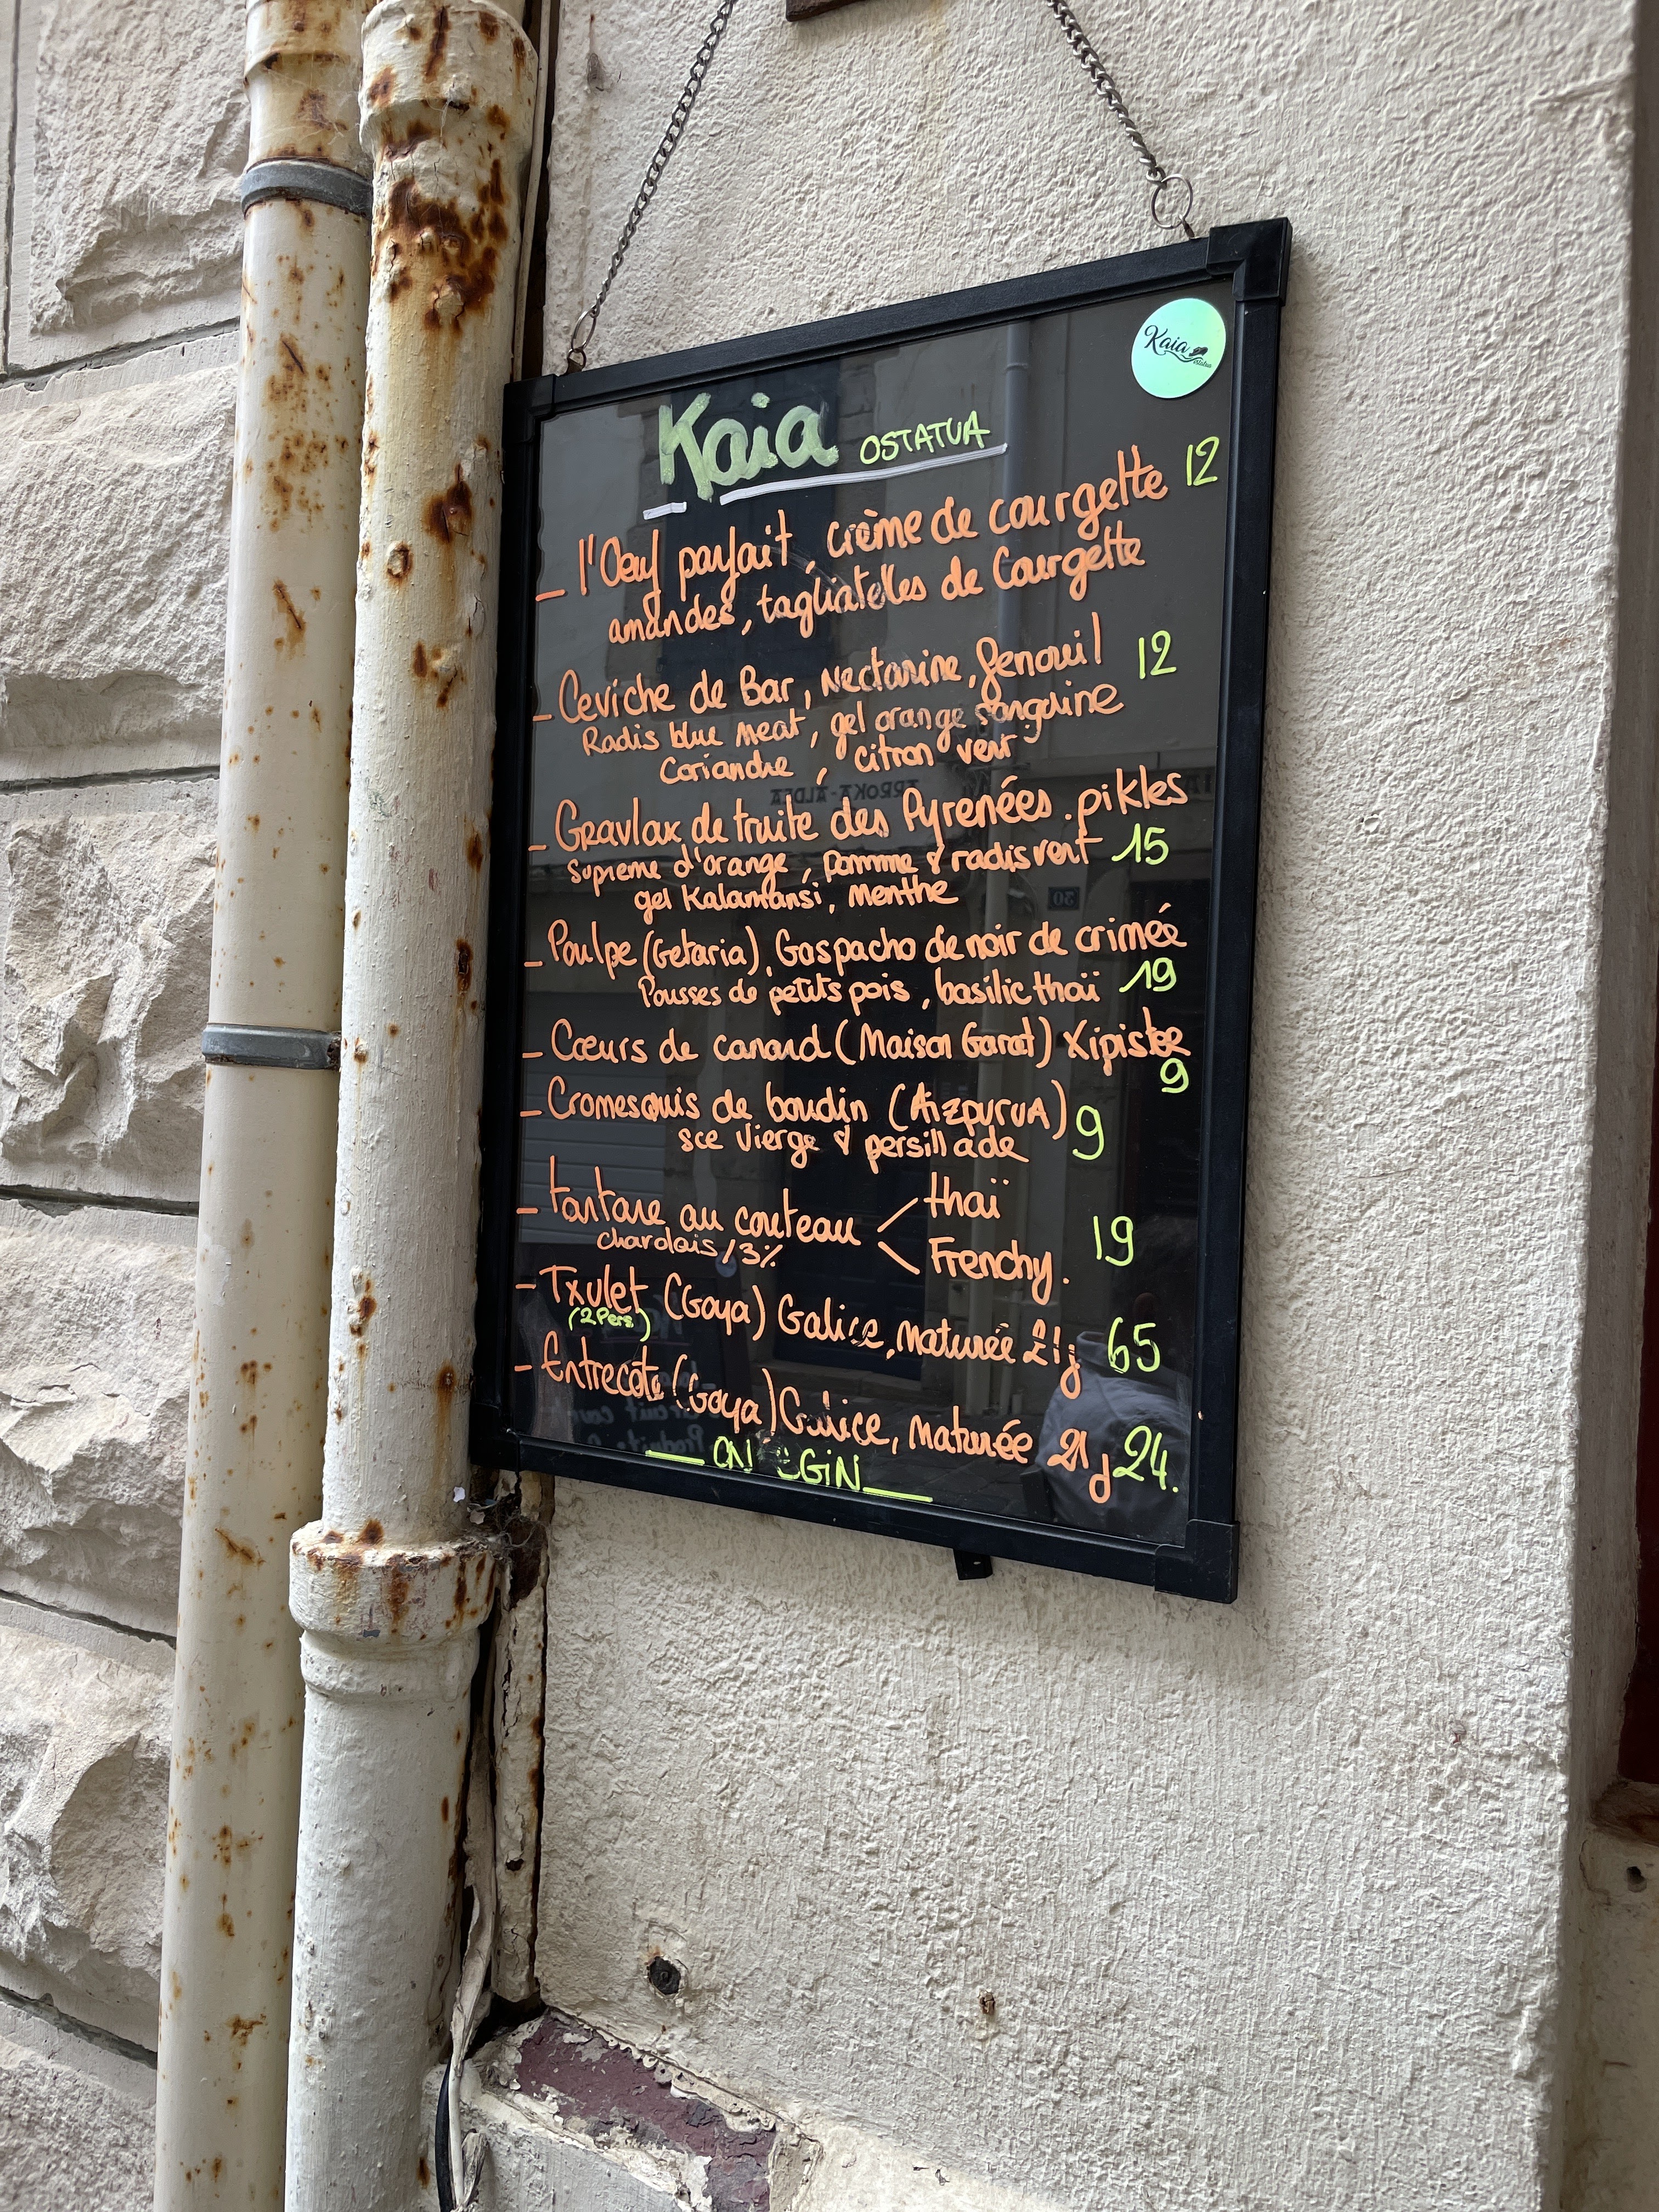 Kaia
ostatua
Kaia OSTATUA
_ l'Oeuf parfait, crème de courgette 12
amandes, tagliatelles de Courgette
_ Ceviche de Bar, Nectarine, fenouil 12
Radis blue meat, gel orange sanguine
Coriandre, citron vert
_ Gravlax de truite des Pyrenées. pikles
Supreme d'orange, Pomme & radis vert 15
gel Kalamansi, Menthe
_ Poulpe (Getaria), Gaspacho de noir de crimée
Pousses de petits pois, basilic thaï 19
_ Cœurs de canard (Maison Garat) Xipister
9
_ Cromesquis de boudin (AizpuruA) 9
sce vierge & persillade
_ tartare au couteau < thaï
Frenchy. 19
charolais / 3%
- Txulet (Goya) Galice, maturée 21j 65
(2 Pers)
- Entrecote (Goya) Galice, maturée 21d 24.
ARROKA-ALDEA
30